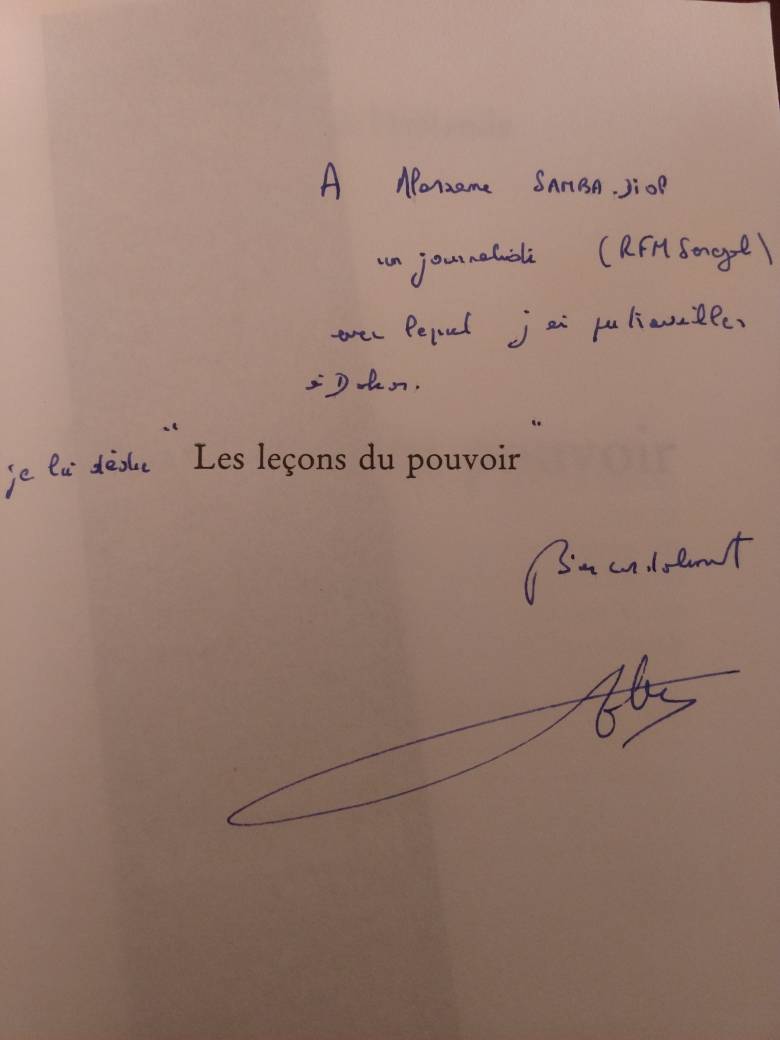 A Alassane SAMBA.Diop
un journaliste (RFM Sénégal)
avec lequel j'ai pu travailler
à Dakar.
je lui dédie " Les leçons du pouvoir "
Bien cordialement